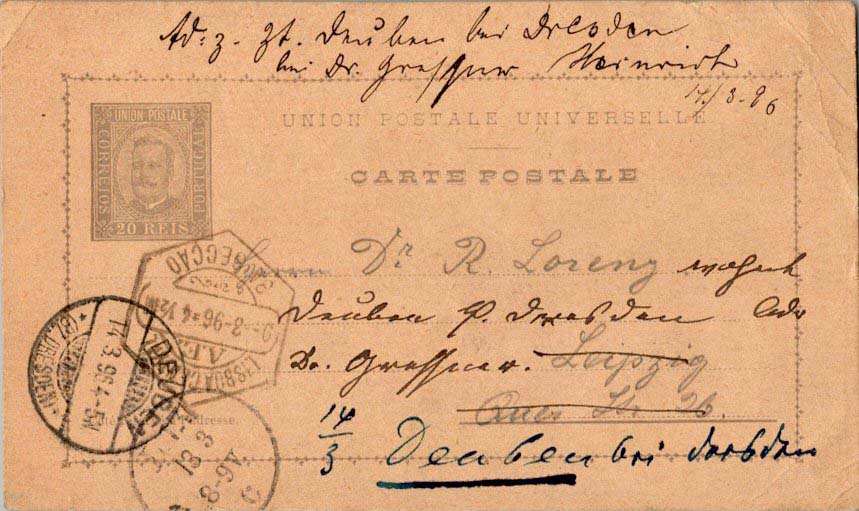 Ad: z. Zt. Deuben bei Dresden
bei Dr. Gressner Heinrich
14/3-96
UNION POSTALE UNIVERSELLE
CARTE POSTALE
UNION POSTALE
CORREIOS
PORTUGAL
20 REIS
Herrn Dr R. Lorenz
Deuben b. Dresden Adr
Dr. Gressner. Leipzig
Str. 26.
14/3 Deuben bei Dresden
SECÇÃO
3-96
LISBOA
14.3.96.4-5N
DRESDEN
DEUBEN